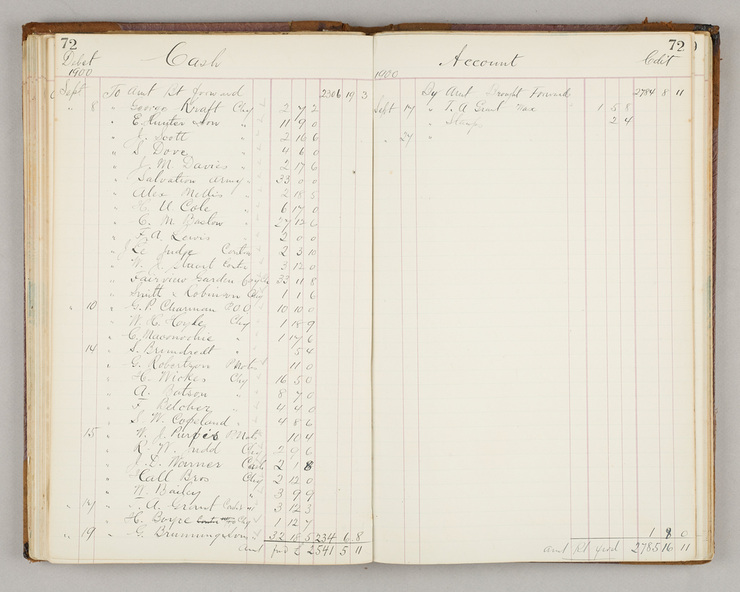 72
Debit Cash
1900
Sept To Amt Bt forward 2306 19 3
" 8 " George Kraft Chq 2 7 2
" E Hunter " 11 9 0
" J. Scott " 2 16 6
" S Dove " 4 6 0
" J. M. Davies " 2 17 6
" Salvation Army " 33 0 0
" Alex Mellis " 2 18 5
" H. U Cole " 6 17 0
" C. M Baslow " 27 12 6
" F. A. Lewis " 2 0 0
" Le Judge Contra 2 3 10
" W. J. Stuart Contra 3 12 0
" Fairview Garden 33 11 8
" Smith & Robinson Chq 1 1 6
" 10 " G. P. Chapman P.O.O 10 10 0
" W. H. Hoyle Chq 1 18 9
" C. Maconochie " 1 17 6
" 14 " S. Brundrodt " 5 4
" G. Robertson P Note 11 0
" H. Wickes Chq 16 5 0
" A. Batson " 8 7 0
" F Belcher " 4 4 0
" S. W. Copeland " 4 8 6
" 15 " W. J. Purvis P Note 10 4
" R. W. Judd Chq 2 9 6
" J. D. Warner Cash 2 1 8
" Hall Bros Chq 2 12 0
" W. Bailey " 3 9 9
" 17 " A. Grant 3 12 3
" H. Boyce Chq 1 12 7
" 19 " G. Brunningham 32 18 5 234 6 8
Amt fwd £ 2541 5 11
72
Account Credit
1900
By Amt Brought Forward 2784 8 11
Sept 17 " T. A. Grant 1 5 8
" Stamps 2 4
" 24 "
1 8 0
Amt Bt fwd 2785 16 11